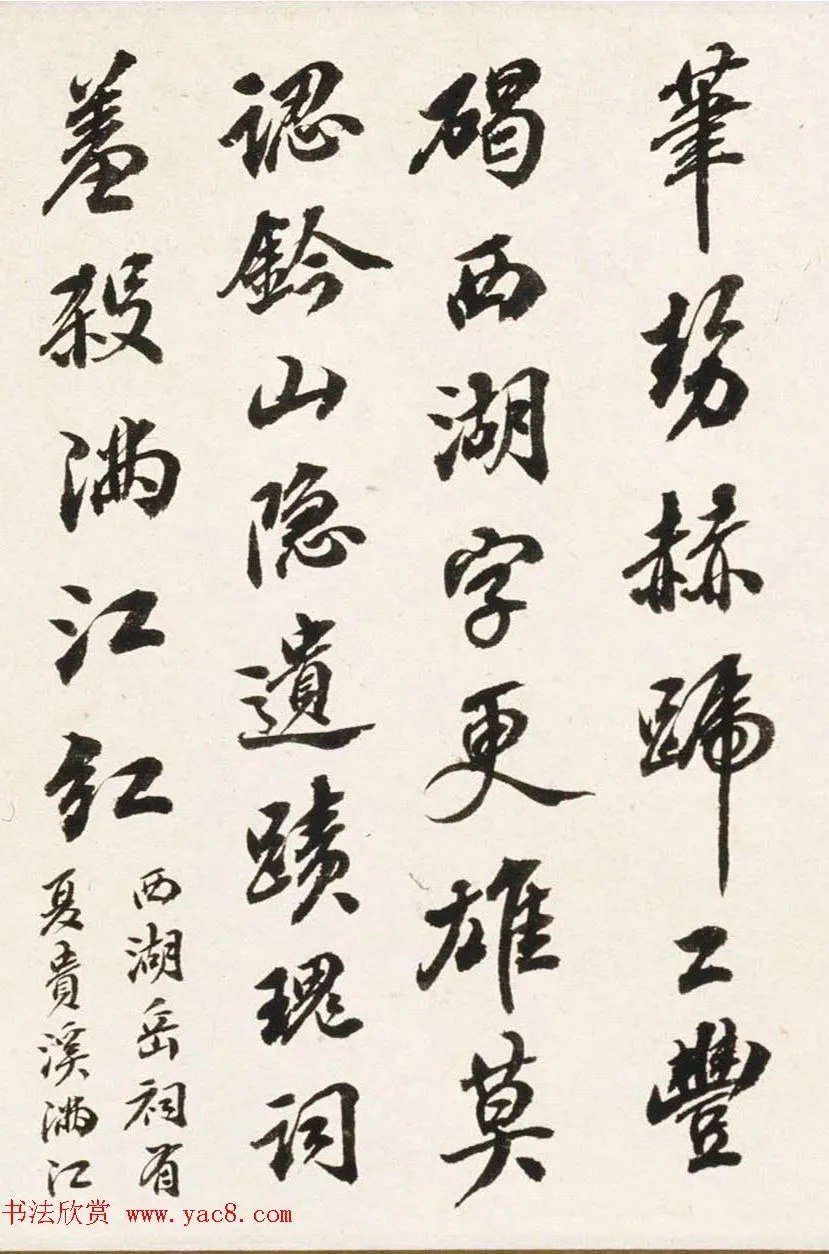 筆勢赫蹄工豐
碣西湖字更雄莫
認鈐山隐遺蹟瑰詞
羞殺滿江紅
西湖岳祠有
夏貴溪滿江
书法欣赏 www.yac8.com